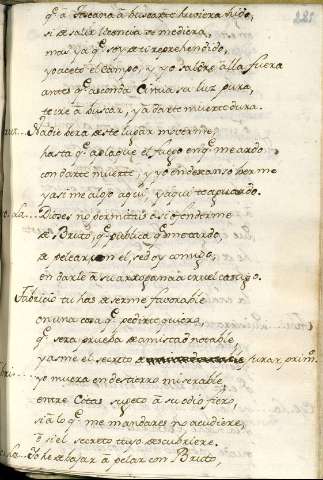 221
q̃ a Toscana a buscarte huuiera hido,
si de salir licencia se me diera,
mas ya q̃ soy de ti reprehendido,
yo aceto el campo, y yo saldre alla fuera
antes q̃ asconda Cintia su luz pura,
te ire a buscar, y a darte muerte dura.
Nadie sera deste lugar mouerme,
hasta q̃ aplaque el fuego en q̃ me ardo
con darte muerte, y yo
y asi me aqui, y aqui te aguardo.
Dioses no permitais asi ofenderme
de Bruto, q̃ publica q̃ me tardo,
de pelear con el, sed oy comigo,
en darle a su arrogancia cruel castigo.
Fabricio tu has de serme favorable
en una cosa q̃ pedirte quiero,
q̃ sera prueba de amistad notable,
y asme el secreto de jurar prim.º
yo muera en destierro miserable,
entre Citas sugeto a su odio fiero,
si a lo q̃ me mandares no acudiere,
o si el secreto tuyo descubriere.
Yo he de bajar a pelear con Bruto,